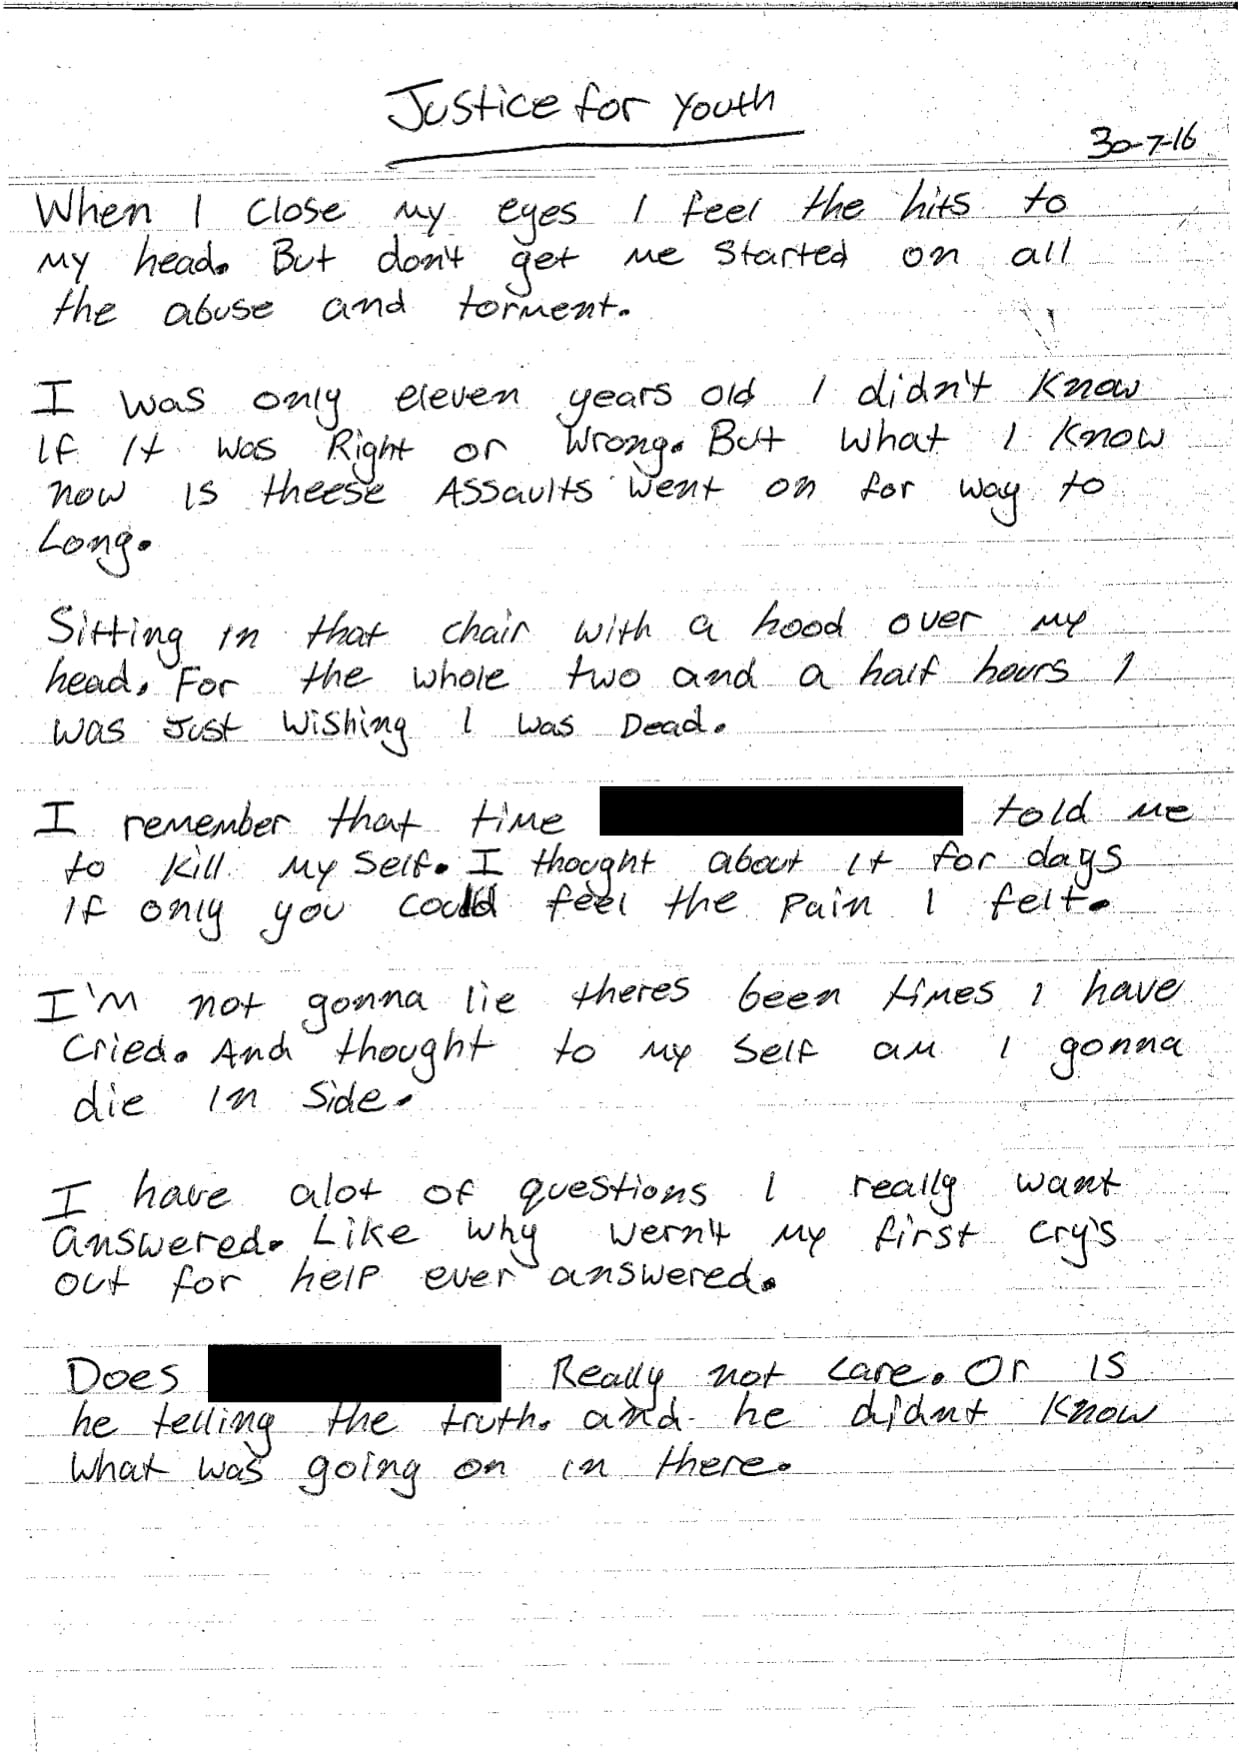 Justice for Youth
30-7-16
When I close my eyes I feel the hits to
my head. But don't get me started on all
the abuse and torment.
I was only eleven years old I didn't know
If It was Right or Wrong. But what I know
now is theese Assaults went on for way to
Long.
Sitting in that chair with a hood over my
head. For the whole two and a half hours I
was Just wishing I was Dead.
I remember that time told me
to kill my self. I thought about it for days
If only you could feel the pain I felt.
I'm not gonna lie theres been times I have
cried. And thought to my self am I gonna
die in side.
I have alot of questions I really want
answered. Like why wern't my first cry's
out for help ever answered.
Does Really not care. Or is
he telling the truth. and he didnt know
what was going on in there.